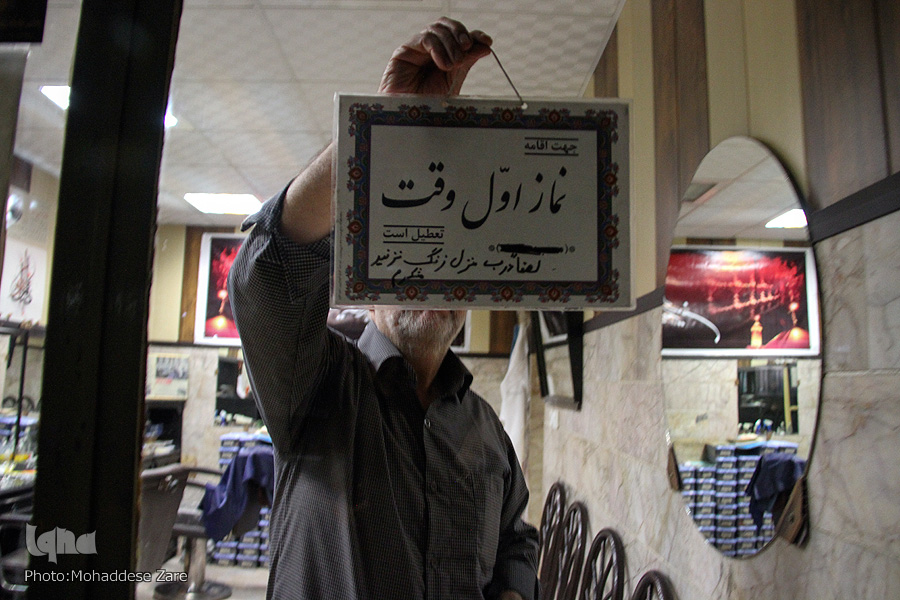 جهت اقامه
نماز اوّل وقت
تعطیل است
لطفاً درب منزل زنگ نزنید
متشکرم
iqna
Photo:Mohaddese Zare